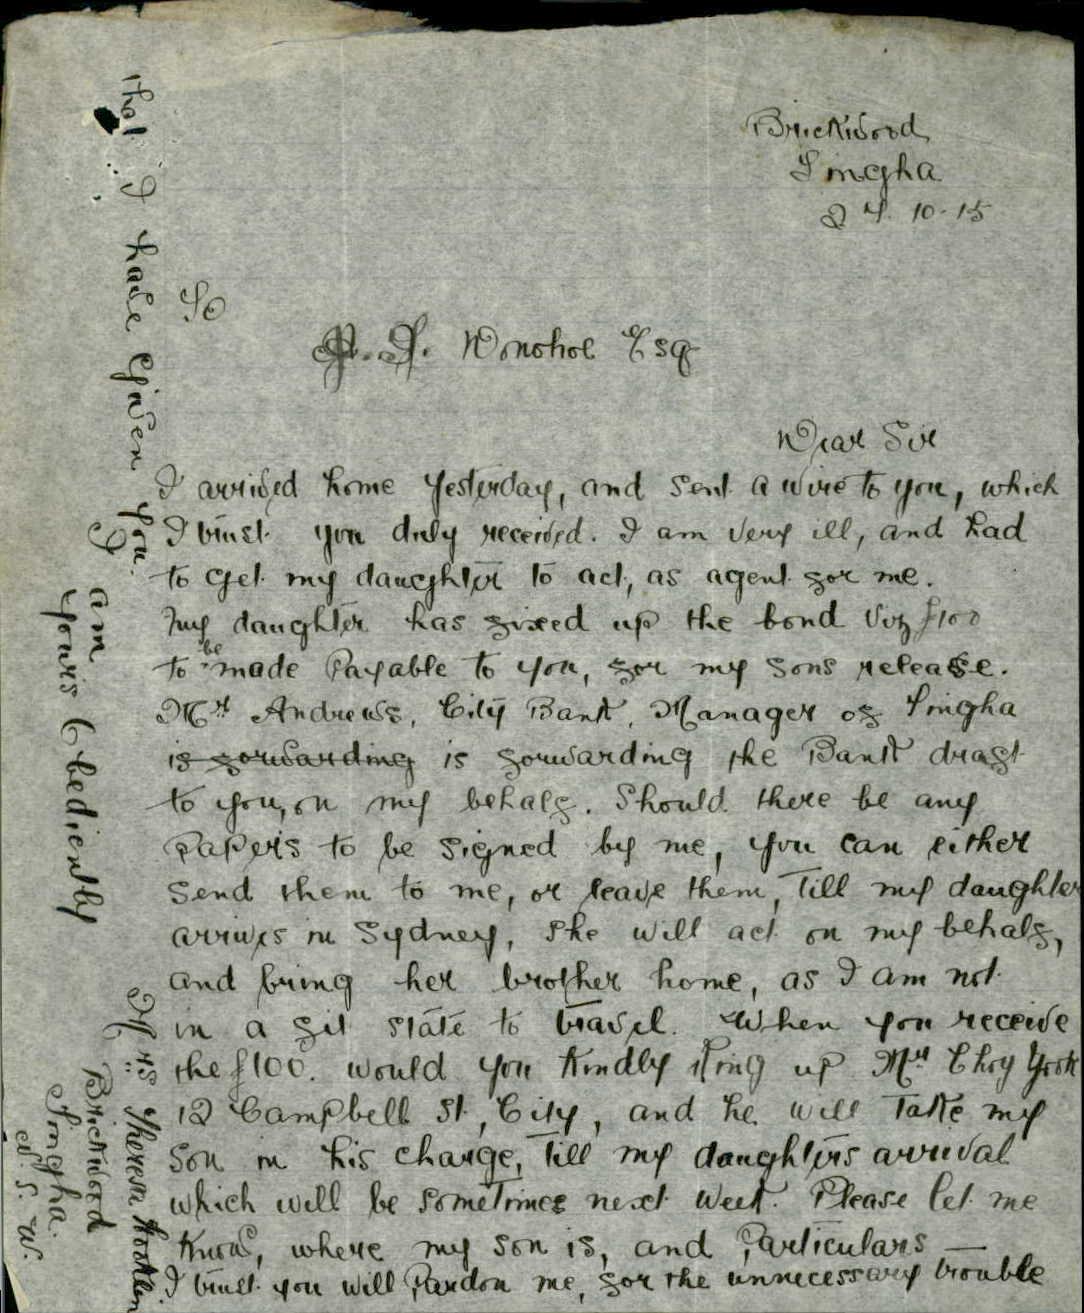 Brickwood
Tingha
24. 10-15
To
J. T. Donohoe Esq
Dear Sir
I arrived home yesterday, and sent a wire to you, which
I trust you duly received. I am very ill, and had
to get my daughter to act, as agent for me.
My daughter has fixed up the bond viz £100
to be made Payable to you, for my sons release.
Mr Andrews, City Bank, Manager of Tingha
is forwarding is forwarding the Bank draft
to you, on my behalf. Should there be any
Papers to be signed by me, you can either
send them to me, or leave them, till my daughter
arrives in Sydney, she will act on my behalf,
and bring her brother home, as I am not
in a fit state to travel. When you receive
the £100. would you kindly Ring up Mr Choy
12 Campbell St, City, and he will take my
son in his charge, till my daughters arrival
which will be sometimes next week. Please let me
know, where my son is, and Particulars
I trust you will Pardon me, for the unnecessary trouble
that I have given you.
I am
yours Obediently
Mrs Theresa
Brickwood
Tingha.
N. S. W.